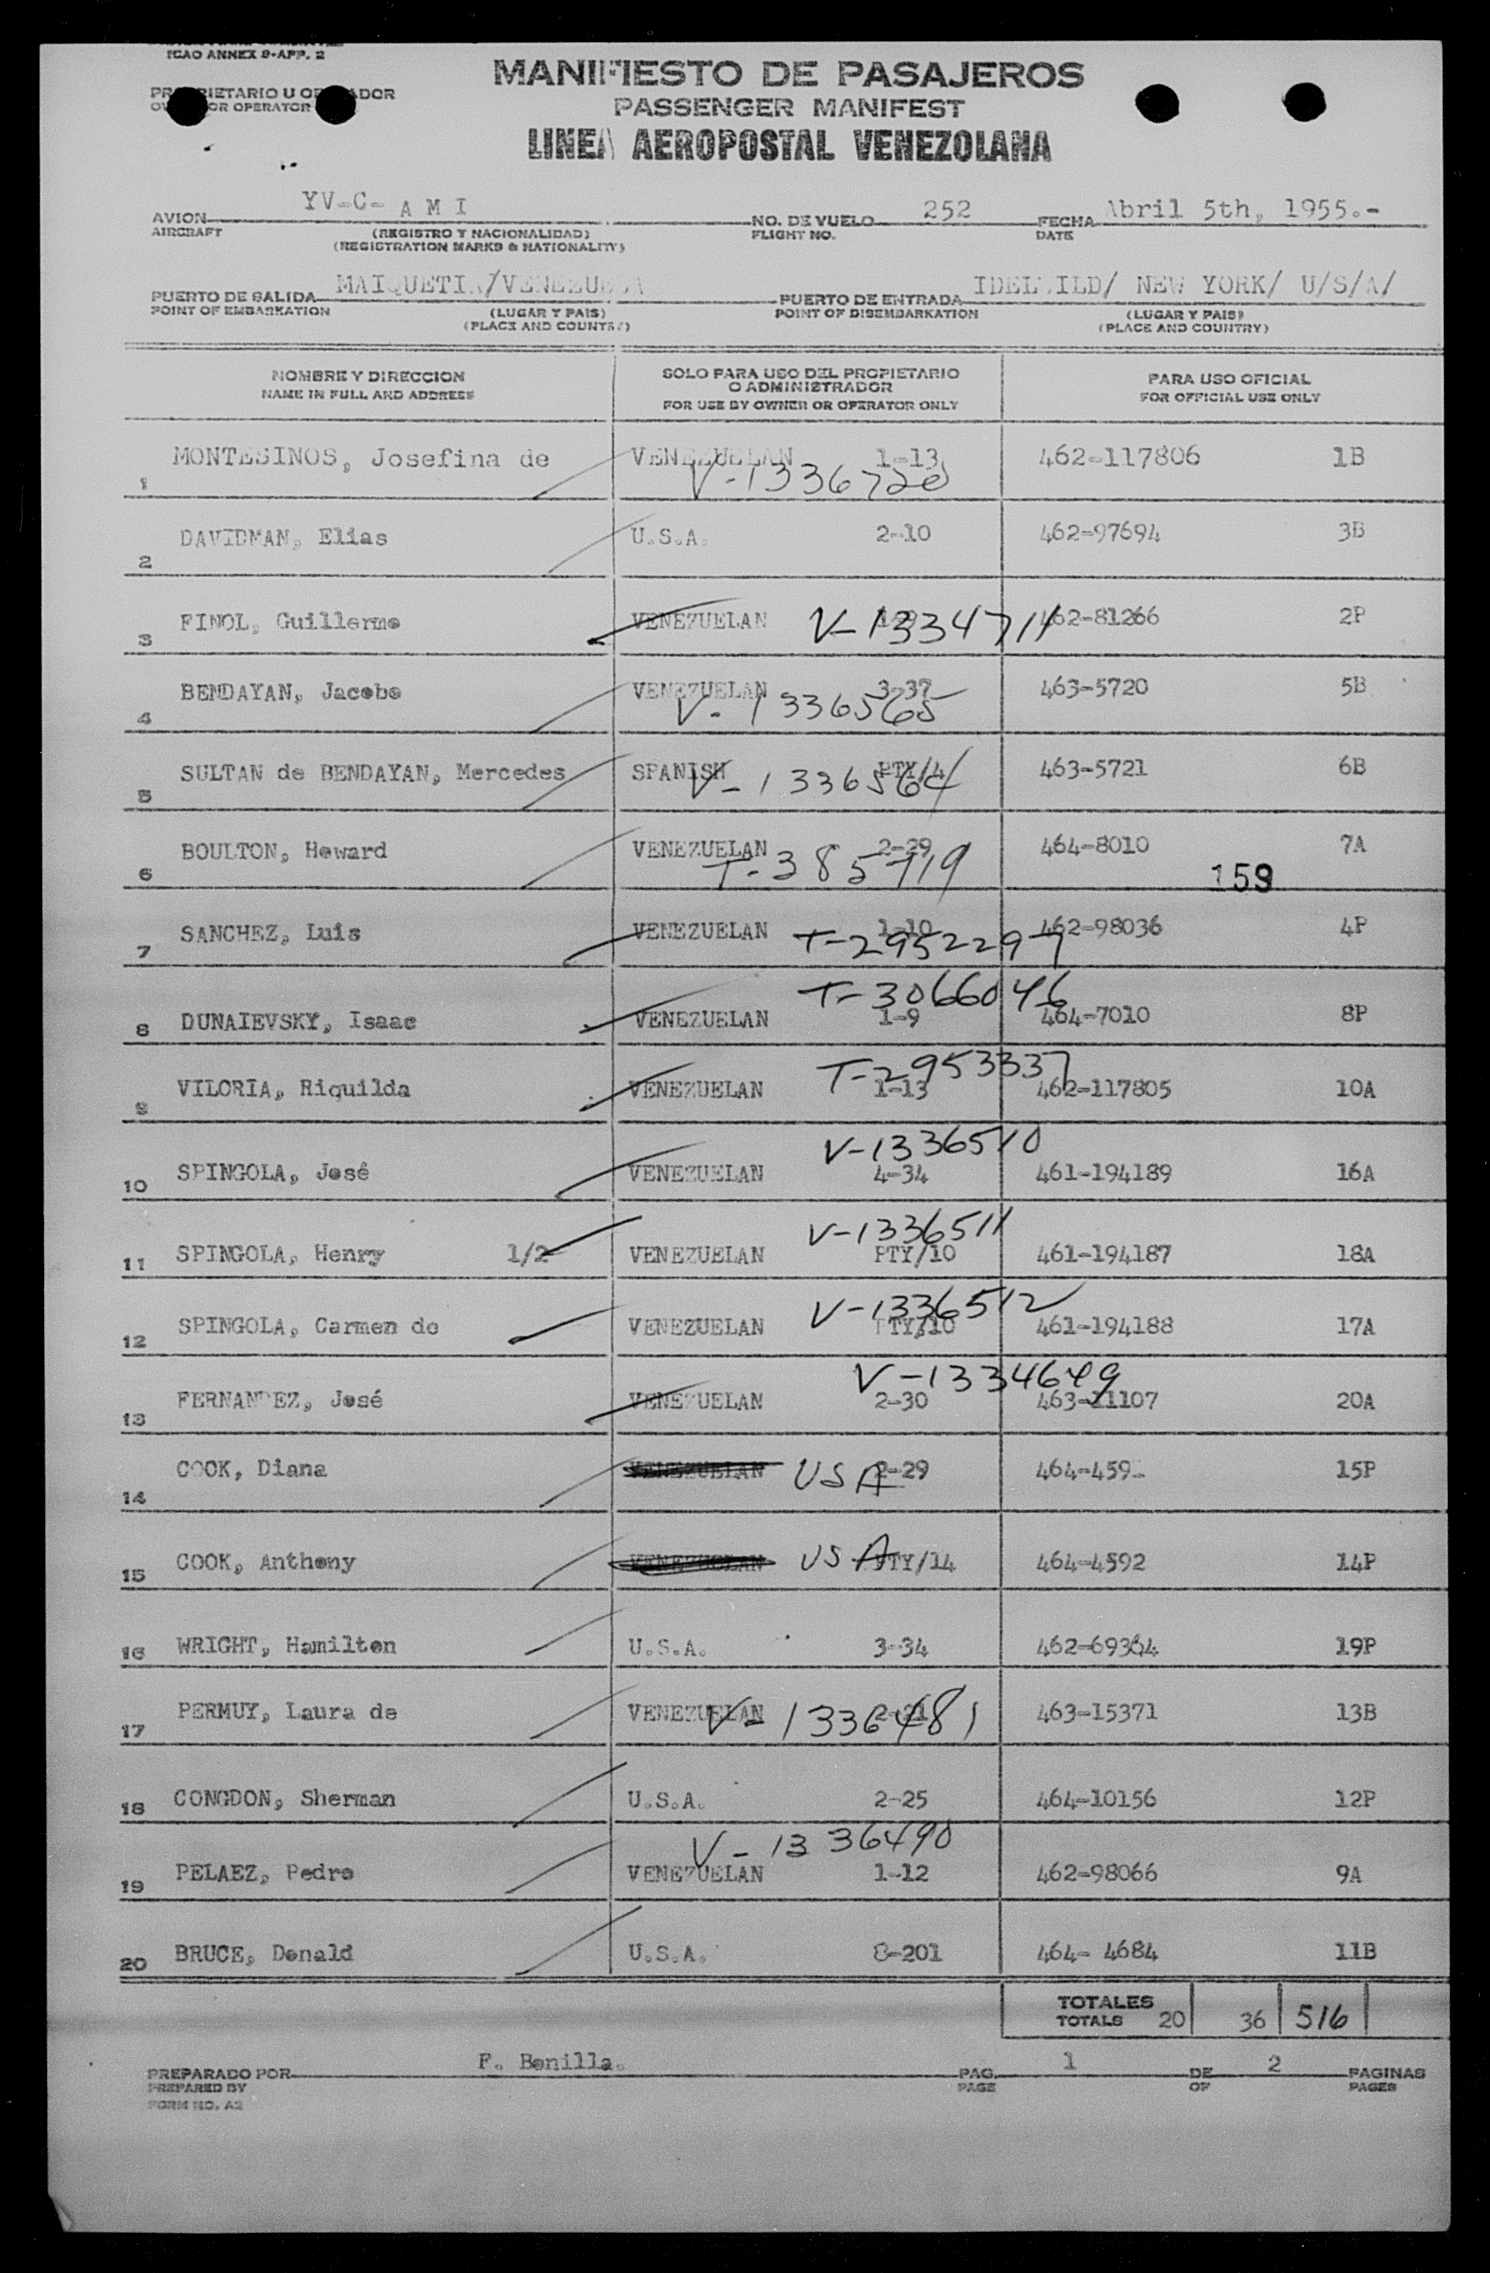 ICAO ANNEX 9-APP. 2
MANIFIESTO DE PASAJEROS
PASSENGER MANIFEST
LINEA AEROPOSTAL VENEZOLANA
OR OPERATOR
YV-C- A M I 252 Abril 5th, 1955.-
AVION NO. DE VUELO FECHA
AIRCRAFT (REGISTRO Y NACIONALIDAD) FLIGHT NO. DATE
(REGISTRATION MARKS & NATIONALITY)
MAIQUETIA/VENEZUELA IDELWILD/ NEW YORK/ U/S/A/
PUERTO DE SALIDA PUERTO DE ENTRADA
POINT OF EMBARKATION (LUGAR Y PAIS) POINT OF DISEMBARKATION (LUGAR Y PAIS)
(PLACE AND COUNTRY) (PLACE AND COUNTRY)
NOMBRE Y DIRECCION SOLO PARA USO DEL PROPIETARIO PARA USO OFICIAL
O ADMINISTRADOR
NAME IN FULL AND ADDRESS FOR USE BY OWNER OR OPERATOR ONLY FOR OFFICIAL USE ONLY
1 MONTESINOS, Josefina de VENEZUELAN 1-13 462-117806 1B
V-1336720
2 DAVIDMAN, Elias U.S.A. 2-10 462-97694 3B
3 FINOL, Guillermo VENEZUELAN V-1334711 462-81266 2P
4 BENDAYAN, Jacobo VENEZUELAN 3-37 463-5720 5B
V-1336565
5 SULTAN de BENDAYAN, Mercedes SPANISH PTY/4 463-5721 6B
V-1336564
6 BOULTON, Howard VENEZUELAN 2-29 464-8010 7A
T-385719
159
7 SANCHEZ, Luis VENEZUELAN 1-10 462-98036 4P
T-2952297
T-3066046
8 DUNAIEVSKY, Isaac VENEZUELAN 1-9 464-7010 8P
T-2953337
9 VILORIA, Riquilda VENEZUELAN 1-13 462-117805 10A
V-1336510
10 SPINGOLA, José VENEZUELAN 4-34 461-194189 16A
V-1336511
11 SPINGOLA, Henry 1/2 VENEZUELAN PTY/10 461-194187 18A
V-1336512
12 SPINGOLA, Carmen de VENEZUELAN PTY/10 461-194188 17A
V-1334649
13 FERNANDEZ, José VENEZUELAN 2-30 463-11107 20A
14 COOK, Diana VENEZUELAN USA 2-29 464-459 15P
15 COOK, Anthony VENEZUELAN USA PTY/14 464-4592 14P
16 WRIGHT, Hamilton U.S.A. 3-34 462-69364 19P
17 PERMUY, Laura de VENEZUELAN 2-21 463-15371 13B
V-1336481
18 CONGDON, Sherman U.S.A. 2-25 464-10156 12P
V-1336490
19 PELAEZ, Pedro VENEZUELAN 1-12 462-98066 9A
20 BRUCE, Donald U.S.A. 8-201 464- 4684 11B
TOTALES
TOTALS 20 36 516
F. Bonilla. 1 2
PREPARADO POR PAG. DE PAGINAS
PREPARED BY PAGE OF PAGES
FORM NO. A2